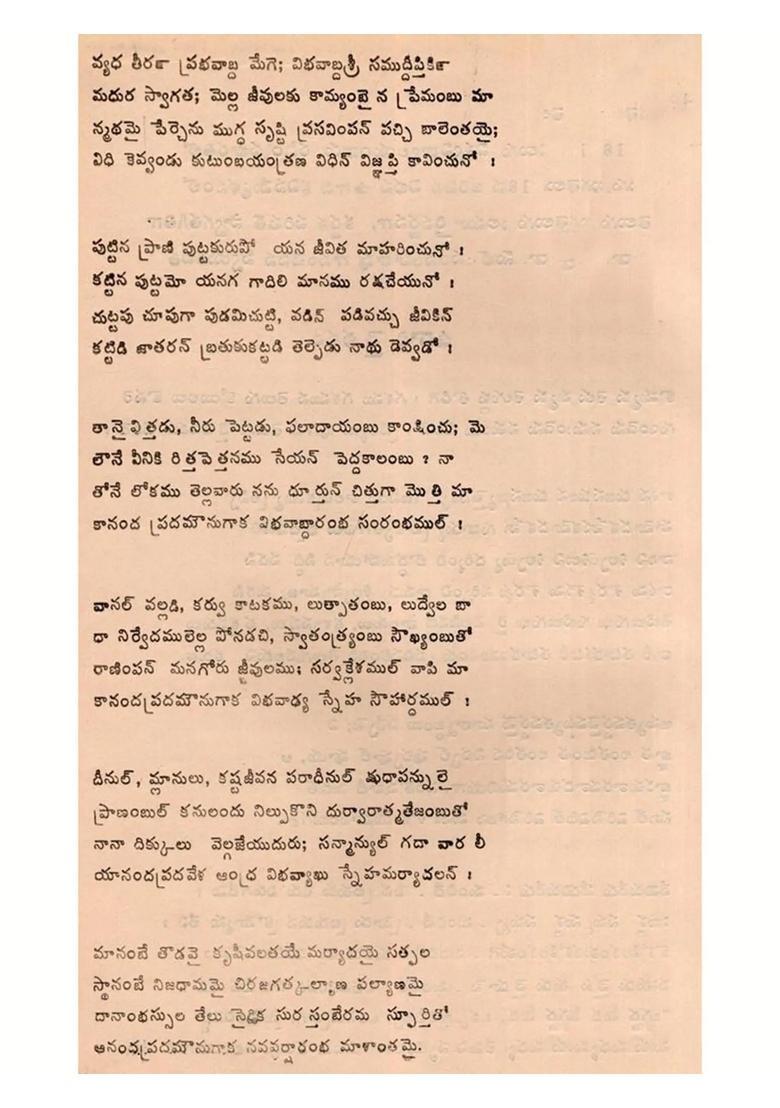 వ్యధ తీరఙా ప్రభవాబ్ద మేగె; విభవాబ్దశ్రీ సముద్దీప్తికిఙా
మధుర స్వాగత; మెల్ల జీవులకు కామ్యంబై న ప్రేమంబు మా
న్మథమై పేర్చెను ముగ్ధ సృష్టి ప్రసవింపన్ వచ్చి బాలెంతయై;
విధి కెవ్వండు కుటుంబయంత్రణ విధిన్ విజ్ఞప్తి కావించునో ।
పుట్టిన ప్రాణి పుట్టకురుపో యన జీవిత మాహరించునో ।
కట్టిన పుట్టమో యనగ గాదిలి మానము రక్షచేయునో ।
చుట్టపు చూపుగా పుడమిచుట్టి, వడిన్ పడివచ్చు జీవికిన్
కట్టిడి జాతరన్ బ్రతుకుకట్టడి తెల్పెడు నాథు డెవ్వడో ।
తానై విత్తడు, నీరు పెట్టడు, ఫలాదాయంబు కాంక్షించు; మె
లౌనే వీనికి రిత్తపెత్తనము సేయన్ పెద్దకాలంబు ? నా
తోనే లోకము తెల్లవారు నను ధూర్తున్ చిత్తుగా మొత్తి మా
కానంద ప్రదమౌనుగాక విభవాబ్దారంభ సంరంభముల్ ।
వానల్ వల్లడి, కర్వు కాటకము, లుత్పాతంబు, లుద్వేల బా
ధా నిర్వేదములెల్ల పోనడచి, స్వాతంత్ర్యంబు సౌఖ్యంబుతో
రాణింపన్ మనగోరు జీవులము; సర్వక్లేశముల్ వాపి మా
కానందప్రదమౌనుగాక విభవాఢ్య స్నేహ సౌహార్దముల్ ।
దీనుల్, మ్లానులు, కష్టజీవన పరాధీనుల్ క్షుధాపన్ను లై
ప్రాణంబుల్ కనులందు నిల్పుకొని దుర్వారాత్మతేజంబుతో
నానా దిక్కులు వెల్గజేయుదురు; సన్మాన్యుల్ గదా వార లీ
యానందప్రదవేళ ఆంధ్ర విభవ్యాఖు స్నేహమర్యాదలన్ ।
మానంబే తొడవై కృషీవలతయే మర్యాదయై సత్ఫల
స్థానంబే నిజధామమై చిరజగత్కల్యాణ పల్యాణమై
దానాంభస్సుల తేలు సైక సుర స్తంబేరమ స్ఫూర్తితో
ఆనందప్రదమౌనుగాక నవవర్షారంభ మాశాంతమై.